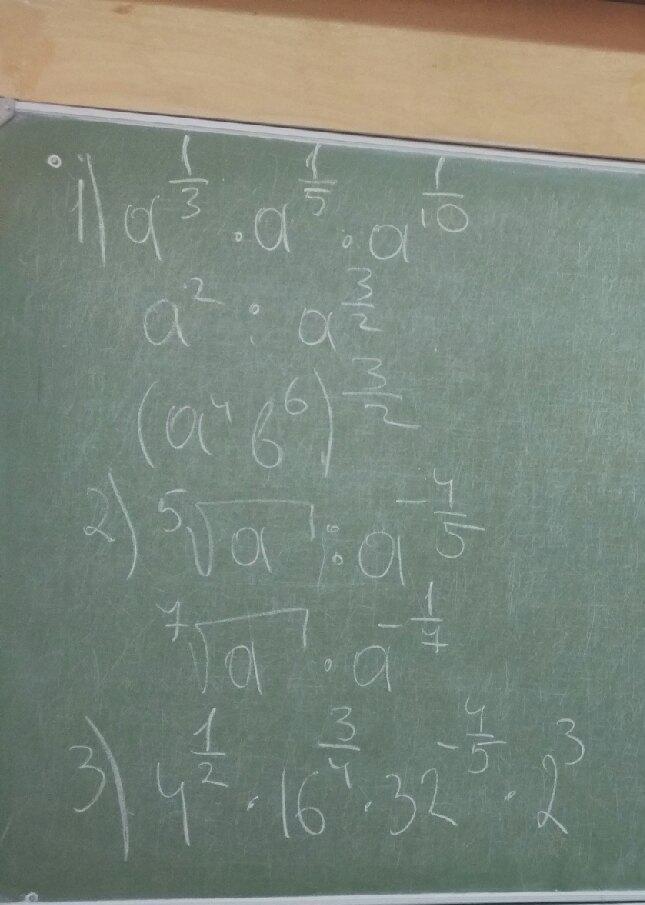 1) a^{1/3} · a^{1/5} · a^{1/10}
a^2 : a^{3/2}
(a^4 b^6)^{3/2}
2) ⁵√a : a^{-4/5}
⁷√a · a^{-1/7}
3) 4^{1/2} · 16^{3/4} · 32^{-4/5} · 2^3